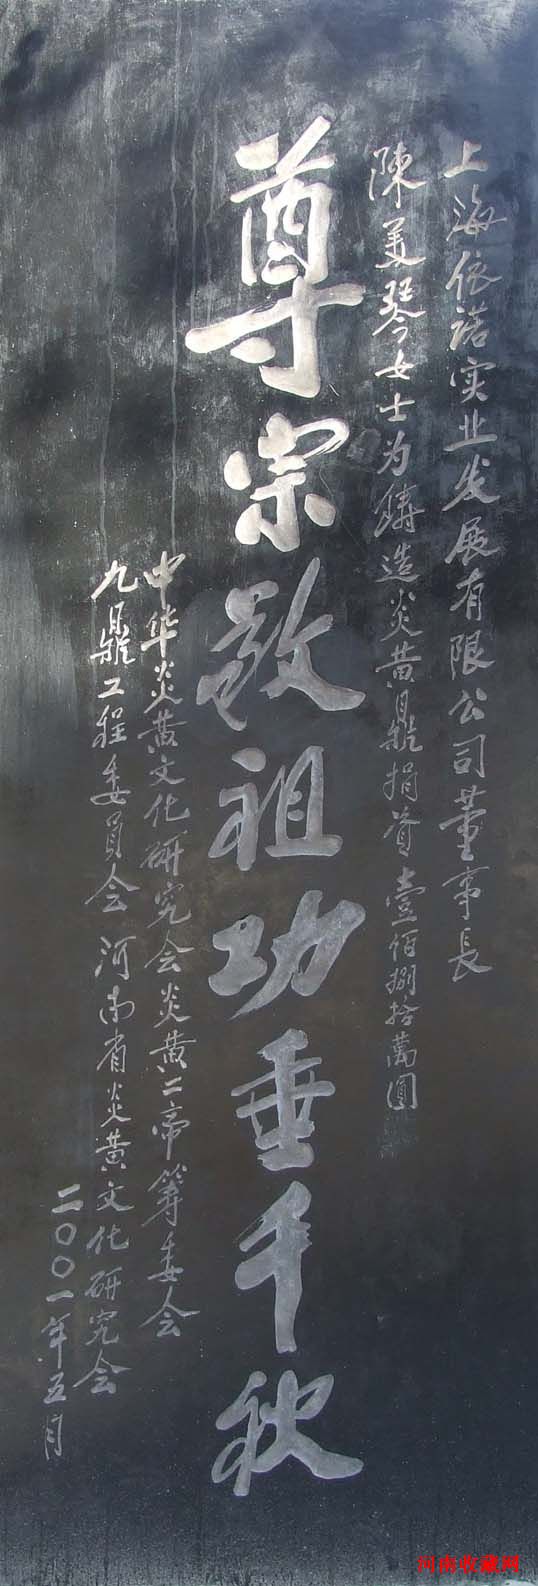 上海依诺实业发展有限公司董事长
陳美琴女士为鑄造炎黄鼎捐資壹佰捌拾萬圓
尊宗敬祖功垂千秋
中华炎黄文化研究会炎黄二帝筹委会
九鼎工程委員会 河南省炎黄文化研究会
二〇〇一年五月
河南收藏网